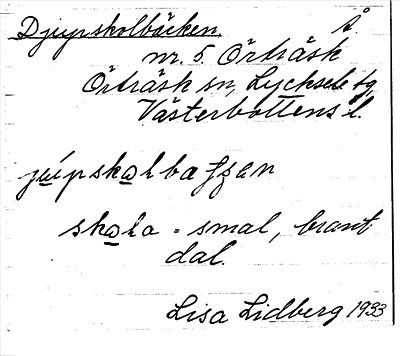 Djupskolbäcken. Å
nr. 5 Örträsk
Örträsk sn, Lycksele tg,
Västerbottens l.
skola = smal, brant
dal.
Lisa Lidberg 1933